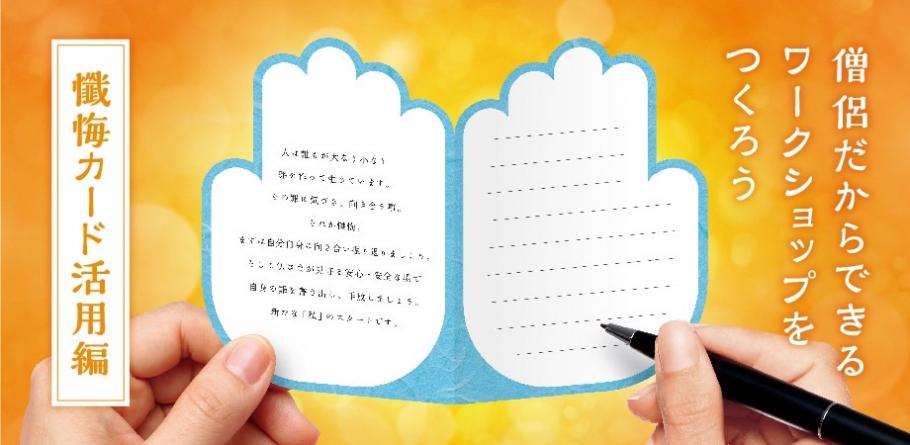 僧侶だからできる
ワークショップを
つくろう
懺悔カード活用編
人は誰もが大なり小なり
罪を作って生きています。
その罪に気づき、向き合う事。
それが懺悔。
まずは自分自身に向き合い振り返りましょう。
そして仏さまが見守る安心・安全な場で
自身の罪を書き出し、手放しましょう。
新たな「私」のスタートです。